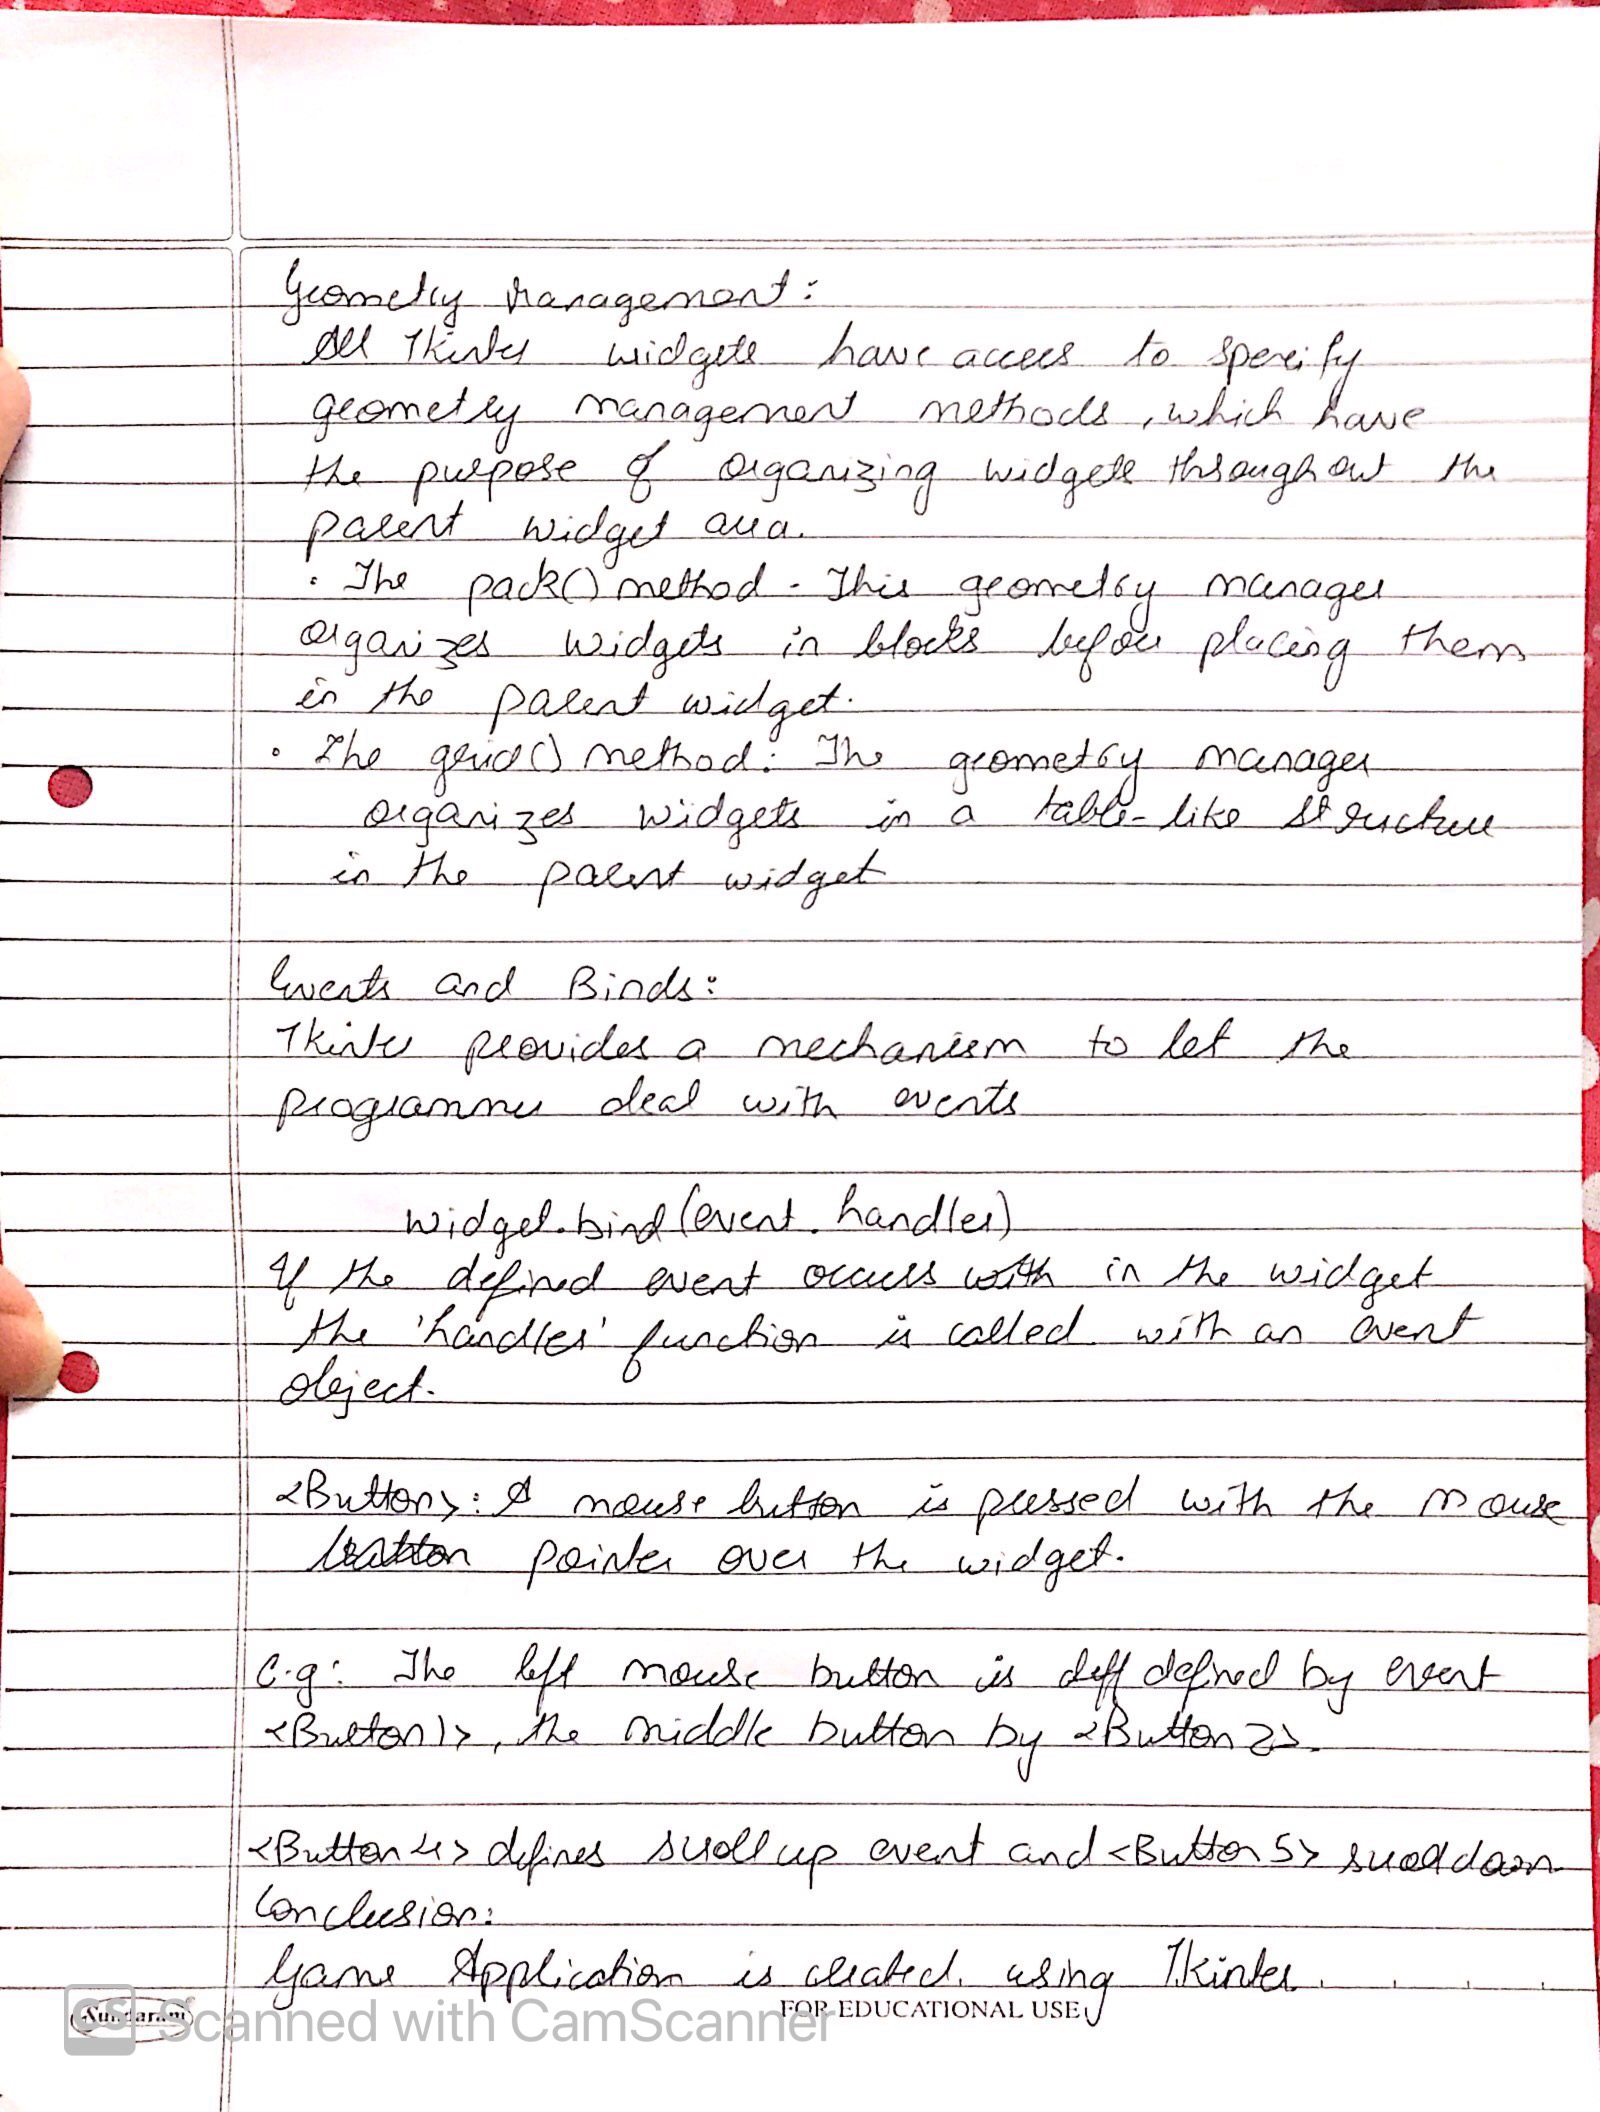 Geometry Management:
All Tkinter widgets have access to specify
geometry management methods, which have
the purpose of organizing widgets throughout the
parent widget area.
• The pack() method - This geometry manager
organizes widgets in blocks before placing them
in the parent widget.
• The grid() method: The geometry manager
organizes widgets in a table-like structure
in the parent widget
Events and Binds:
Tkinter provides a mechanism to let the
programmer deal with events
widget.bind(event. handler)
If the defined event occurs with in the widget
the 'handler' function is called with an event
object.
<Button>: A mouse button is pressed with the mouse
button pointer over the widget.
e.g: The left mouse button is diff defined by event
<Button1>, the middle button by <Button 2>.
<Button 4> defines scroll up event and <Button 5> scroll down
Conclusion:
Game Application is created using Tkinter
Sundaram
FOR EDUCATIONAL USE
CS Scanned with CamScanner